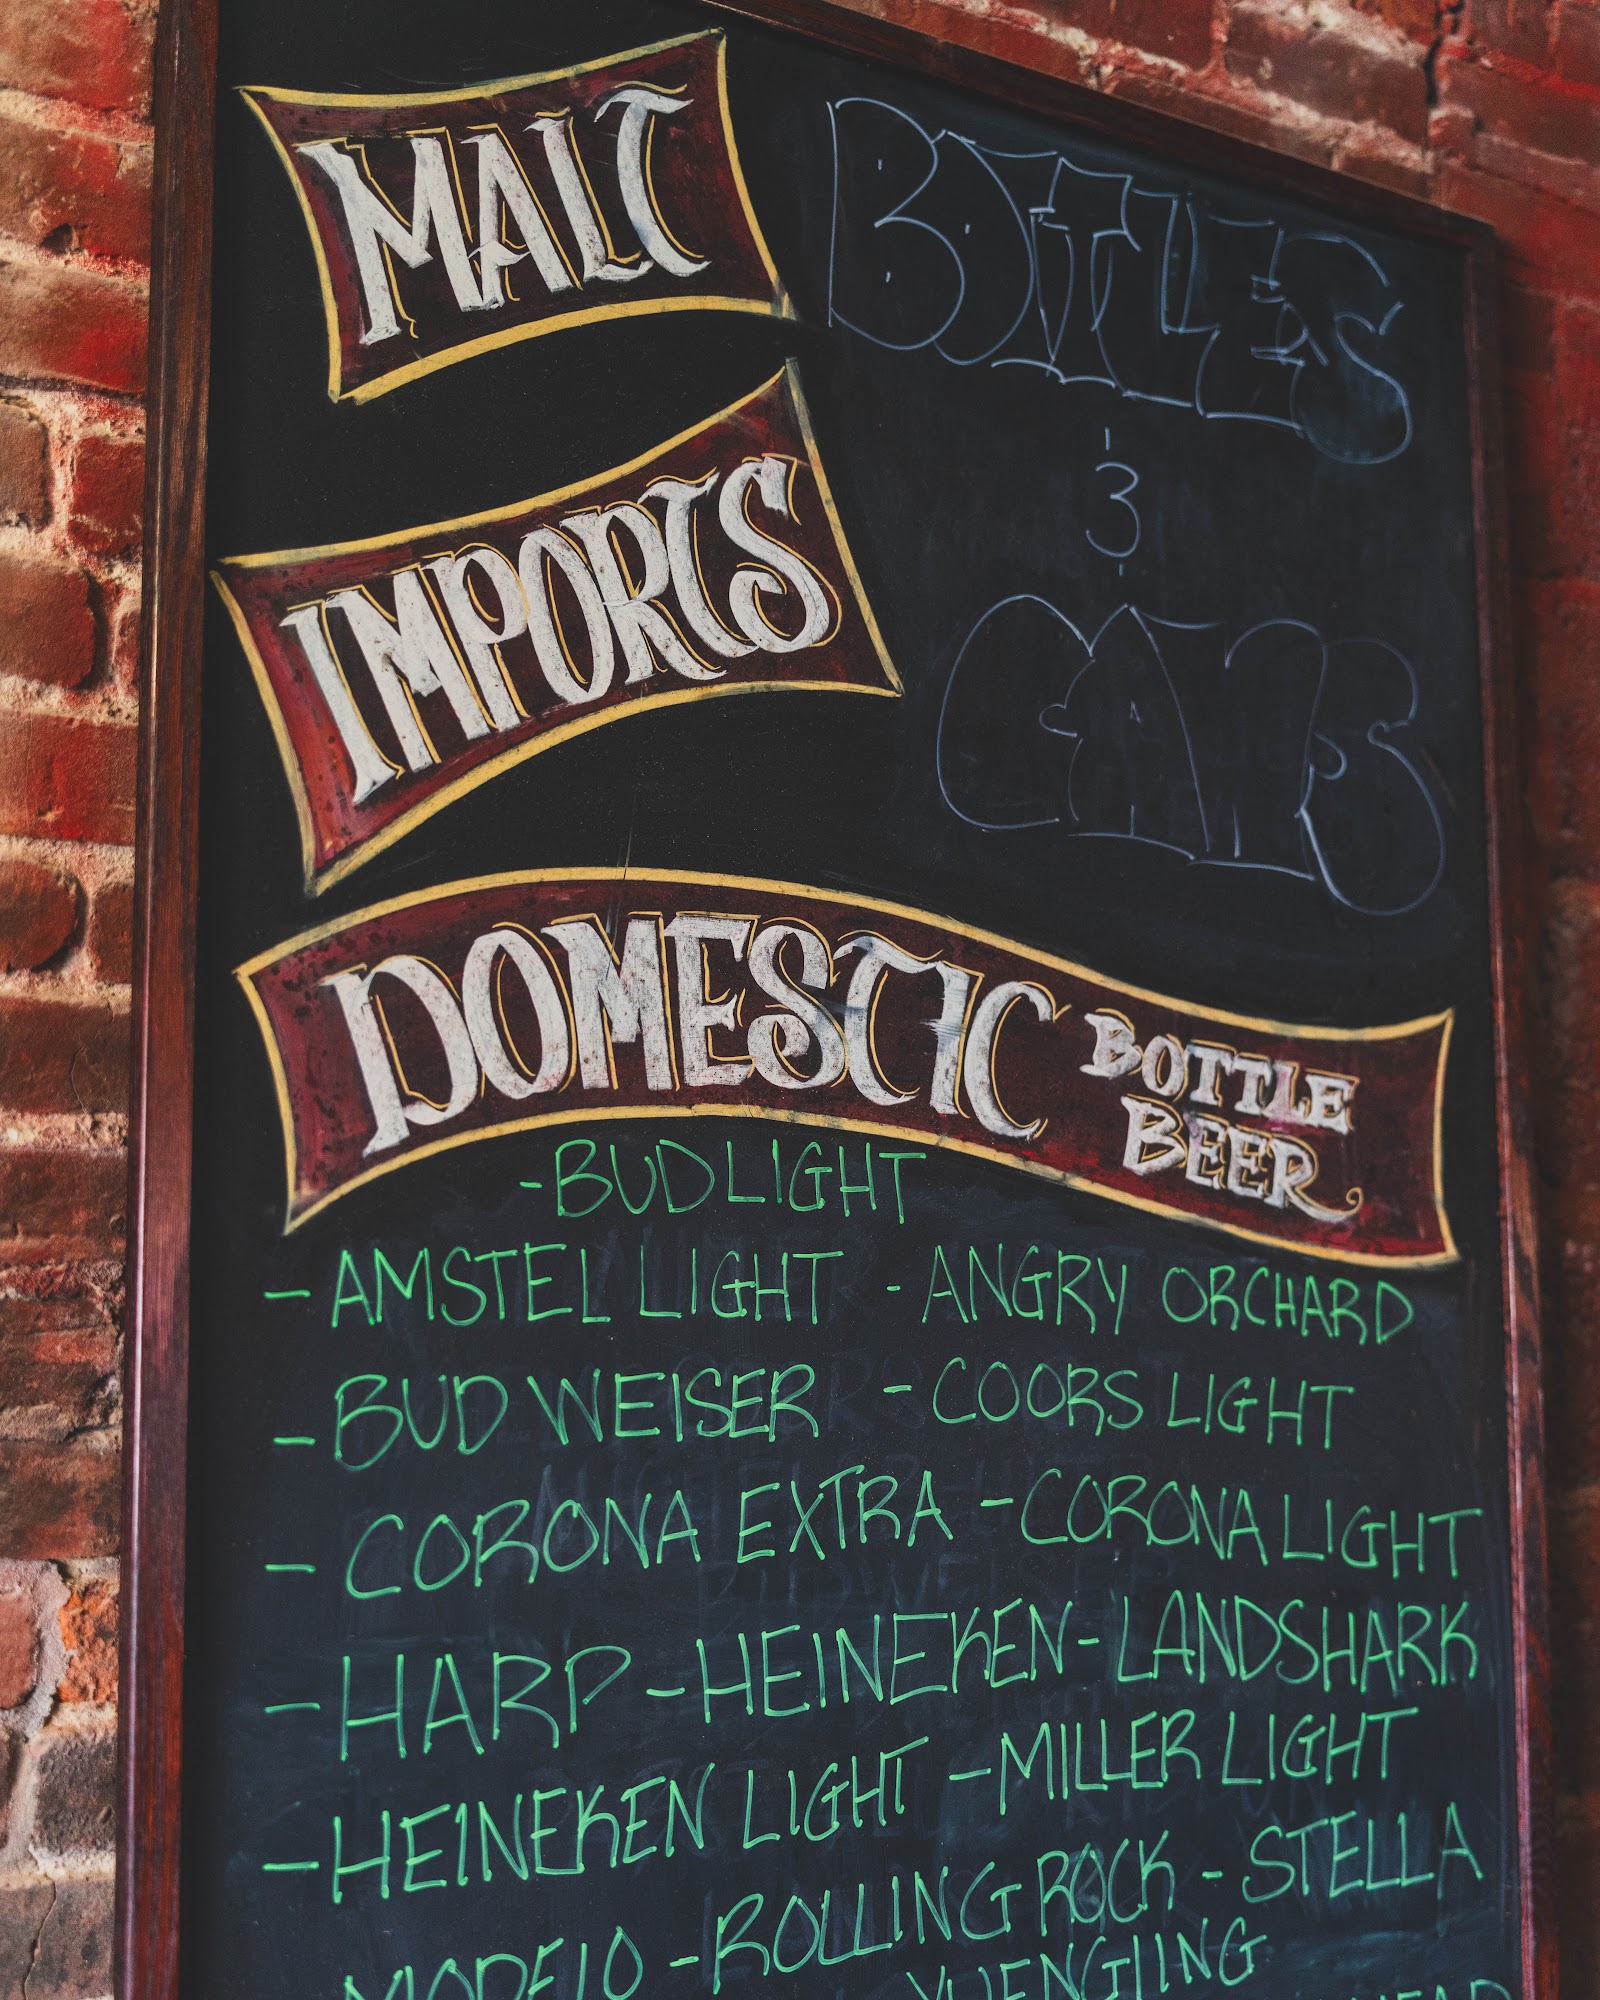 MALT
BOTTLES
&
CANS
IMPORTS
DOMESTIC BOTTLE BEER
-BUD LIGHT
-AMSTEL LIGHT -ANGRY ORCHARD
-BUDWEISER -COORS LIGHT
-CORONA EXTRA -CORONA LIGHT
-HARP -HEINEKEN -LANDSHARK
-HEINEKEN LIGHT -MILLER LIGHT
MODELO -ROLLING ROCK -STELLA
YUENGLING